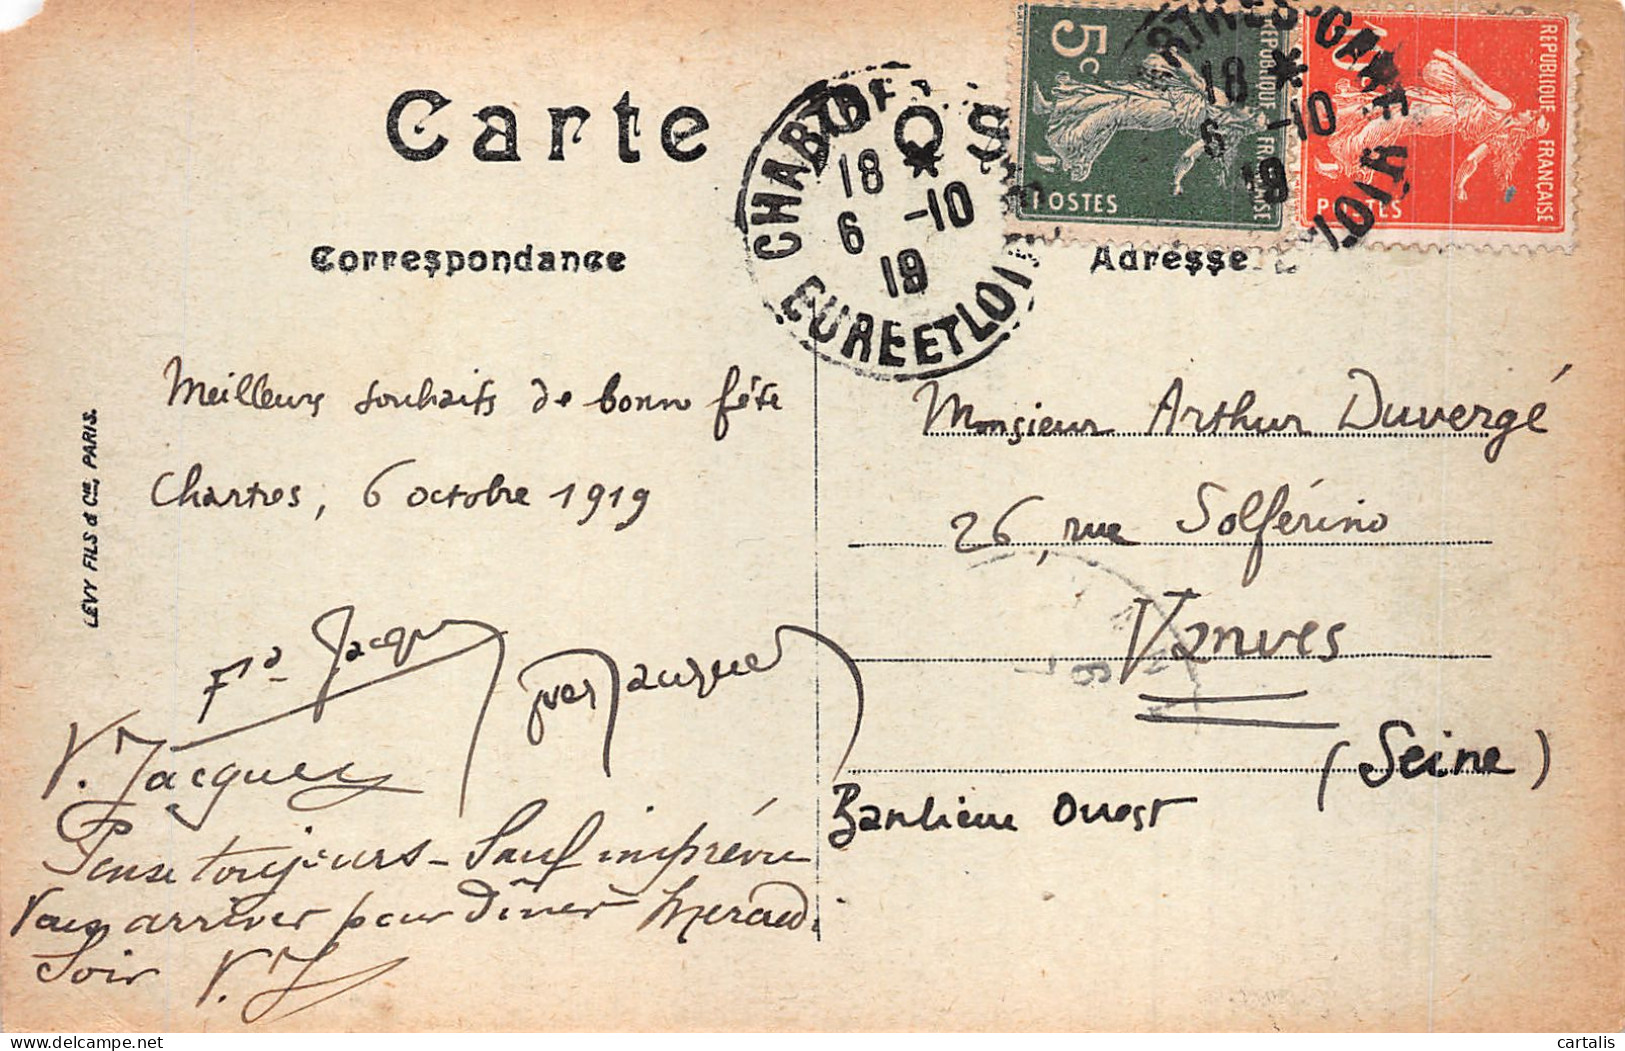 Carte
Correspondance
Adresse
LEVY FILS & Cie, PARIS.
CHARTRES
18 *
6 -10
19
EURE ET LOIR
5c
REPUBLIQUE FRANÇAISE
POSTES
10
REPUBLIQUE FRANÇAISE
POSTES
CHARTRES-GARE
18 *
6 -10
19
Meilleurs souhaits de bonne fête
Chartres, 6 octobre 1919
Fd Jacques
Yves Jacques
V. Jacques
Pense toujours - Sauf imprévu
arriver pour dîner Mercredi
Soir V. J
Monsieur Arthur Duvergé
26, rue Solférino
Vanves
(Seine)
Banlieue Ouest
cartalis
delcampe.net